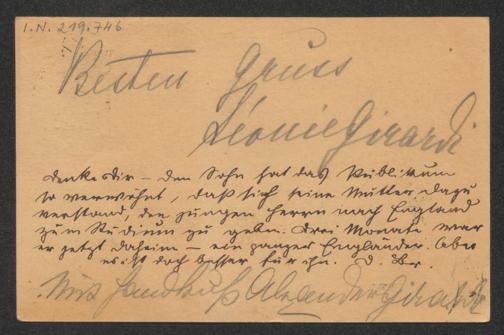 I.N. 219.746
Besten Gruss
Léonie Girardi
Denke Dir – den Sohn hat das Publikum
so verwöhnt, daß sich seine Mutter dazu
verstand, den jungen Herrn nach England
zum Studium zu geben. Drei Monate war
er jetzt daheim – ein ganzer Engländer. Aber
es ist doch besser für ihn. D. Br.
Mit Handkuß Alexander Girardi